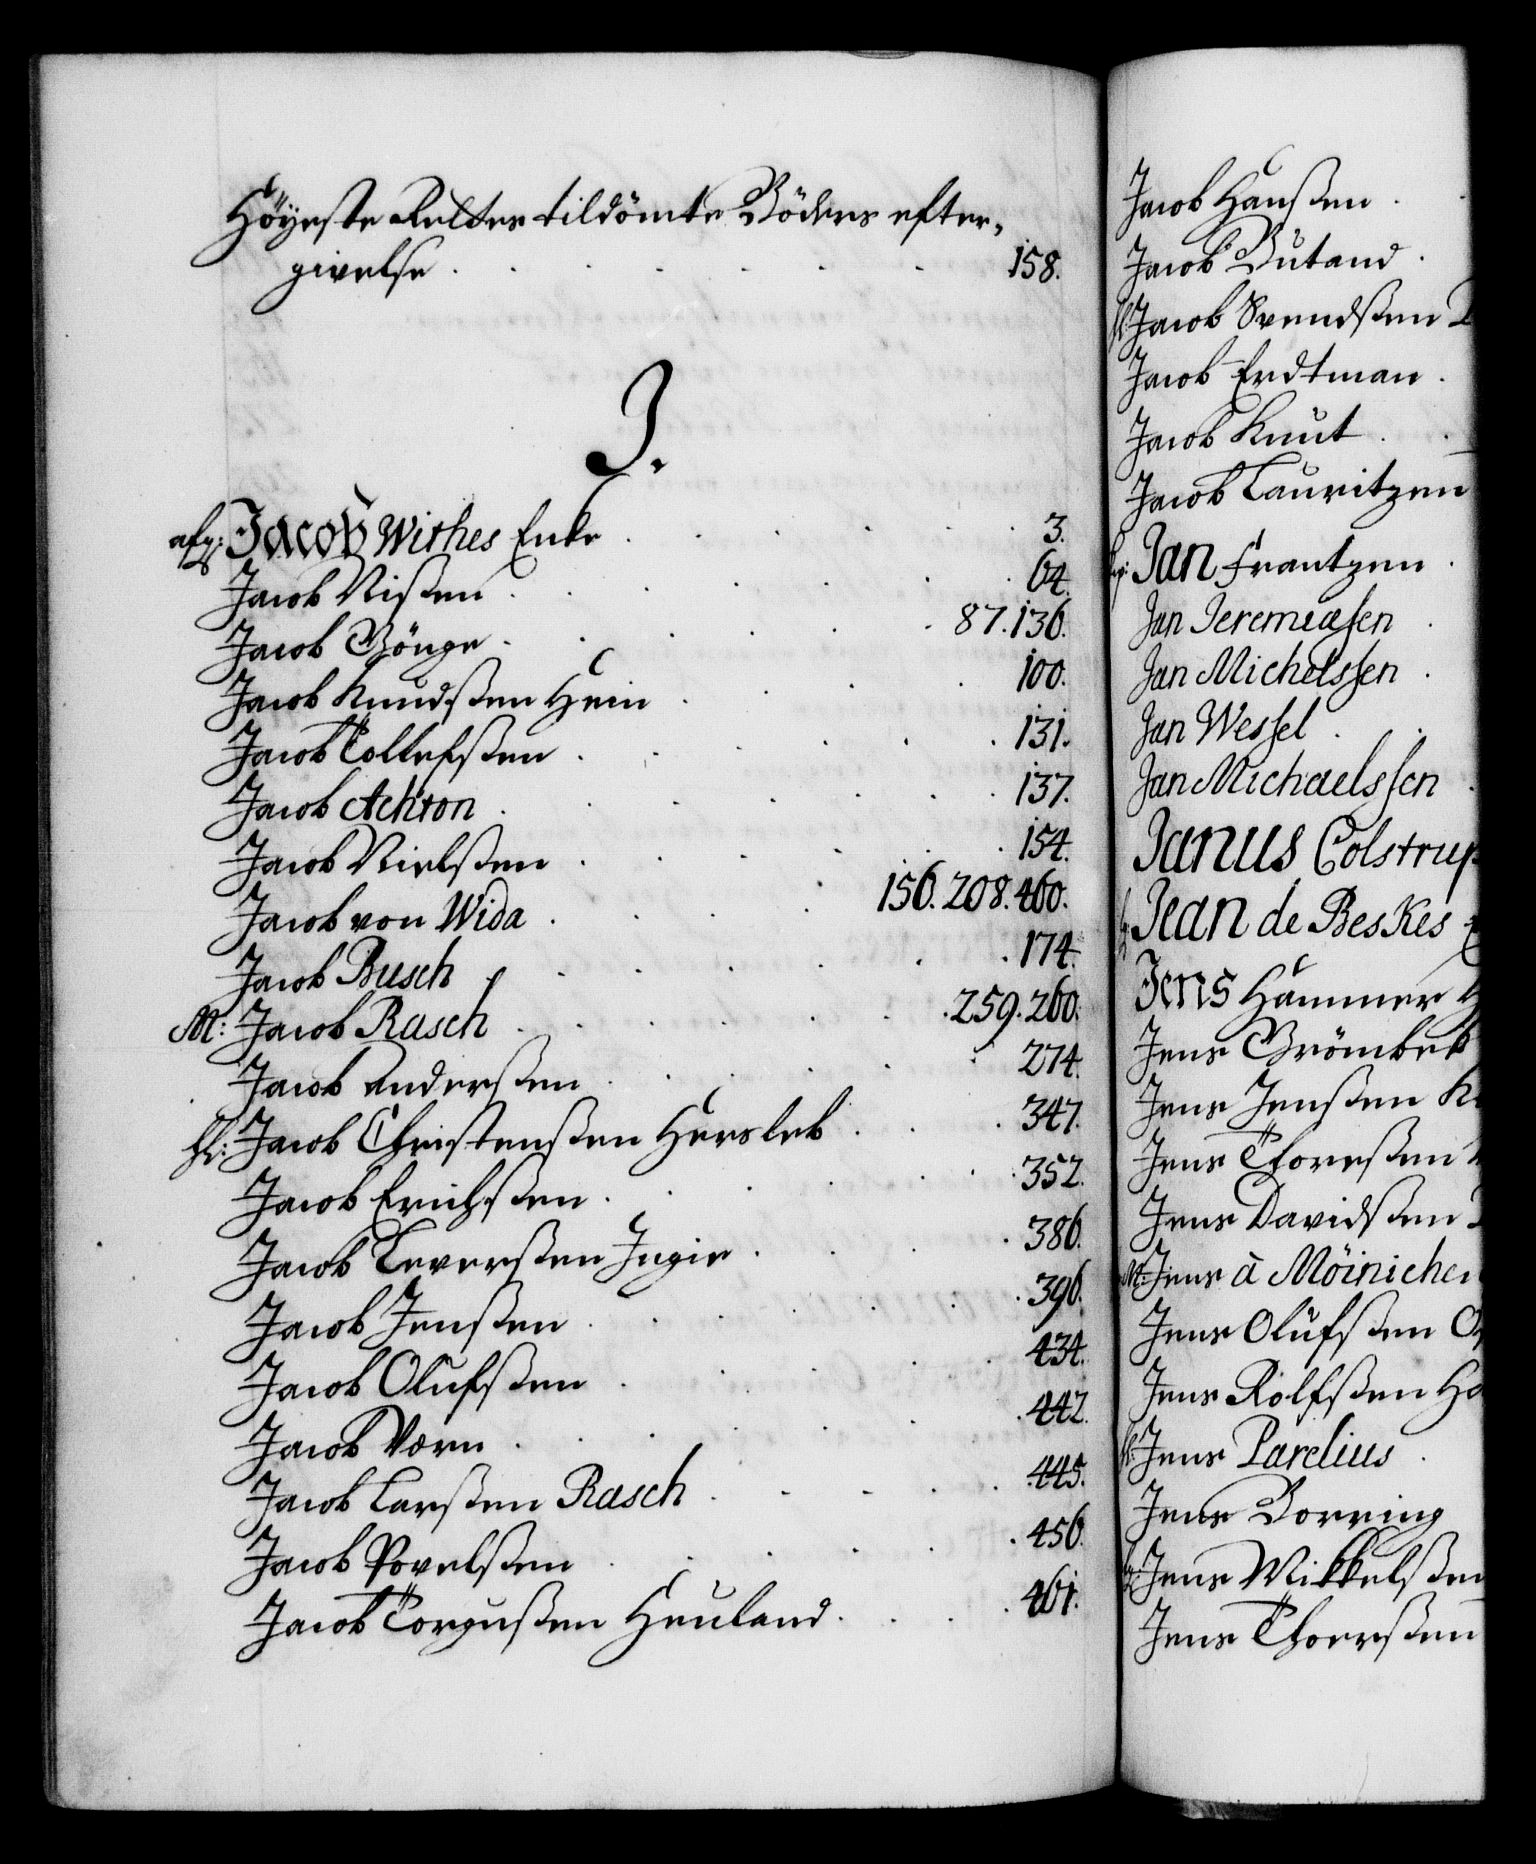 Höyeste Rettes tildömte Böders efter-
givelse . . . . . . . 158.
J.
afg: Jacob Withes Enke . . . . . 3.
Jacob Nissen . . . . . 64.
Jacob Bönge . . . . . 87. 136.
Jacob Knudssen Hein . . . . 100.
Jacob Tollefssen . . . . . 131.
Jacob Achton . . . . . 137.
Jacob Nielssen . . . . . 154.
Jacob von Wida . . . . 156. 208. 460.
Jacob Busch . . . . . 174.
M: Jacob Rasch . . . . . 259. 260.
Jacob Anderssen . . . . . 274.
Hr: Jacob Christenssen Hersleb . . . 347.
Jacob Erichssen . . . . . 352.
Jacob Leverssen Ingier . . . . 386.
Jacob Jenssen . . . . . 396.
Jacob Olufssen . . . . . 434.
Jacob Værn . . . . . 442.
Jacob Larssen Rasch . . . . . 445.
Jacob Povelssen . . . . . 456.
Jacob Torgussen Heuland . . . . 461.
Jacob Hanssen .
Jacob Butand .
Jacob Svendssen
Jacob Erdtman .
Jacob Knut . .
Jacob Lauritzen
Jan Frantzen .
Jan Jeremiæsen .
Jan Michelssen .
Jan Wessel . .
Jan Michaelssen .
Janus Colstrup
Jean de Beskes
Jens Hammer
Jens Grömbek
Jens Jenssen
Jens Thoressen
Jens Davidssen
M: Jens à Möinichen
Jens Olufssen
Jens Rolfssen
Jens Parelius .
Jens Borring
Jens Mikkelssen
Jens Thoerssen